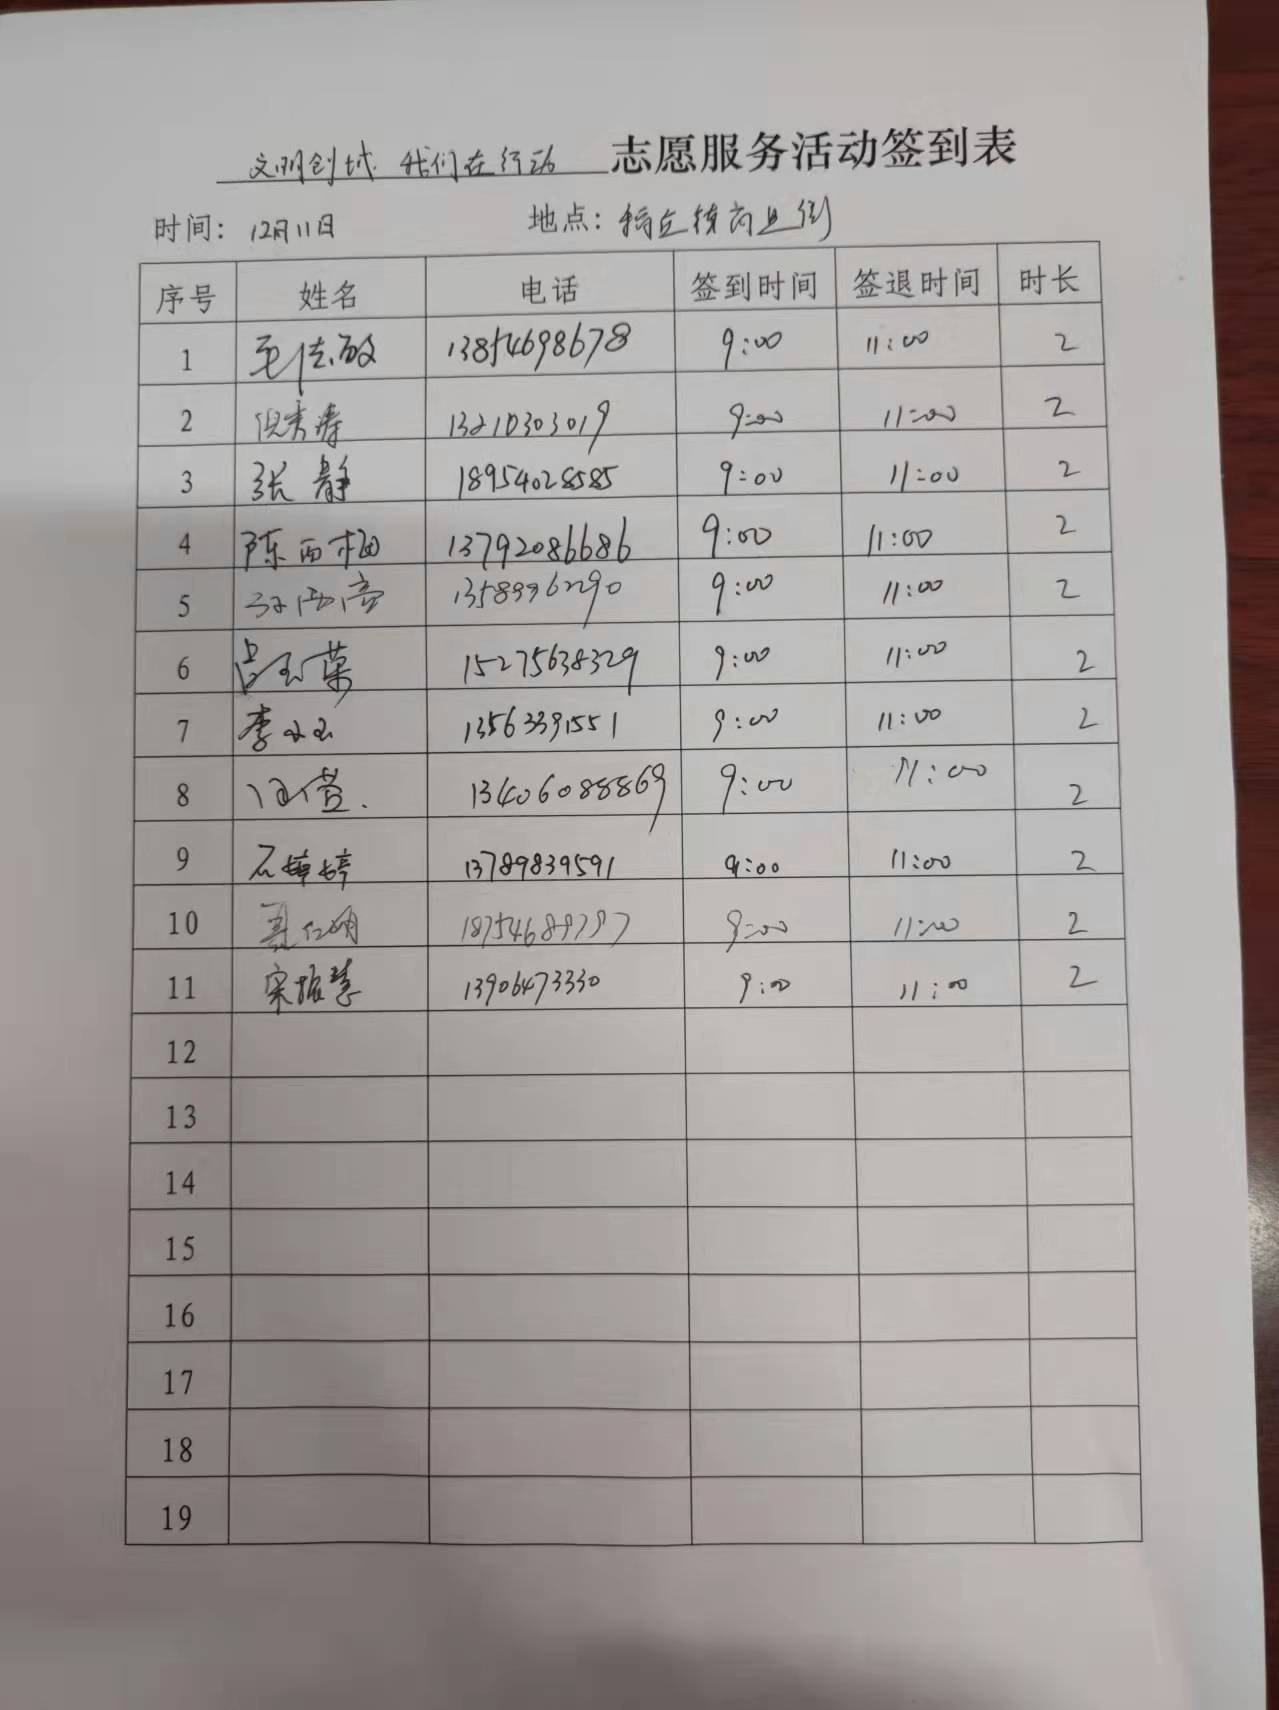 文明创城 我们在行动 志愿服务活动签到表
时间：12月11日 地点：商业街
序号 姓名 电话 签到时间 签退时间 时长
1 毛志敏 13854698678 9:00 11:00 2
2 倪秀涛 13210303019 9:00 11:00 2
3 张静 18954028585 9:00 11:00 2
4 陈西梅 13792086686 9:00 11:00 2
5 13589996290 9:00 11:00 2
6 吕玉荣 15275638329 9:00 11:00 2
7 李小玉 13563391551 9:00 11:00 2
8 13406088869 9:00 11:00 2
9 石婷婷 13789839591 9:00 11:00 2
10 9:00 11:00 2
11 宋振慧 13906473330 9:00 11:00 2
12
13
14
15
16
17
18
19